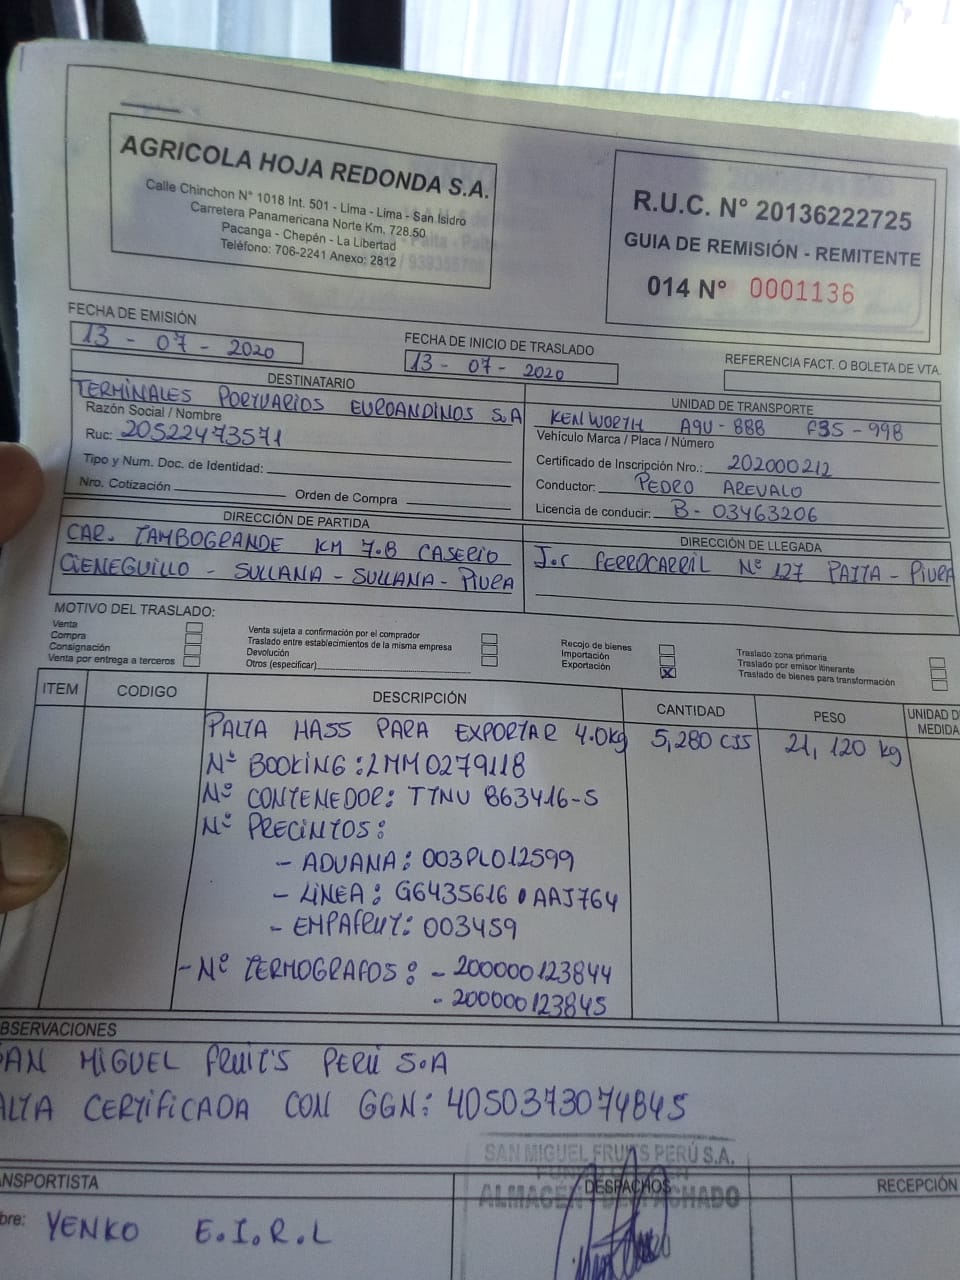 AGRICOLA HOJA REDONDA S.A.
Calle Chinchon N° 1018 Int. 501 - Lima - Lima - San Isidro
Carretera Panamericana Norte Km. 728.50
Pacanga - Chepén - La Libertad
Teléfono: 706-2241 Anexo: 2812
R.U.C. N° 20136222725
GUIA DE REMISIÓN - REMITENTE
014 N° 0001136
FECHA DE EMISIÓN
13 - 07 - 2020
FECHA DE INICIO DE TRASLADO
13 - 07 - 2020
REFERENCIA FACT. O BOLETA DE VTA.
DESTINATARIO
TERMINALES PORTUARIOS EUROANDINOS S.A
Razón Social / Nombre
Ruc: 20522473571
Tipo y Num. Doc. de Identidad:
Nro. Cotización Orden de Compra
UNIDAD DE TRANSPORTE
KENWORTH A9U-888 F3S-998
Vehículo Marca / Placa / Número
Certificado de Inscripción Nro.: 202000212
Conductor: PEDRO AREVALO
Licencia de conducir: B-03463206
DIRECCIÓN DE PARTIDA
CAR. TAMBOGRANDE KM 7.8 CASERIO
CIENEGUILLO - SULLANA - SULLANA - PIURA
DIRECCIÓN DE LLEGADA
J.r FERROCARRIL N° 127 PAITA - PIURA
MOTIVO DEL TRASLADO:
Venta
Compra
Consignación
Venta por entrega a terceros
Venta sujeta a confirmación por el comprador
Traslado entre establecimientos de la misma empresa
Devolución
Otros (especificar)
Recojo de bienes
Importación
Exportación X
Traslado zona primaria
Traslado por emisor itinerante
Traslado de bienes para transformación
ITEM CODIGO DESCRIPCIÓN CANTIDAD PESO UNIDAD D
MEDIDA
PALTA HASS PARA EXPORTAR 4.0kg 5,280 CJS 21,120 kg
N° BOOKING: LMM0279118
N° CONTENEDOR: TTNU 863416-5
N° PRECINTOS:
- ADUANA: 003PL012599
- LINEA: G6435616 . AAJ764
- EMPAFRUT: 003459
- N° TERMOGRAFOS: - 200000123844
- 200000123845
BSERVACIONES
AN MIGUEL FRUIT'S PERÚ S.A
ALTA CERTIFICADA CON GGN: 4050373074845
SAN MIGUEL FRUITS PERÚ S.A.
ALMACÉN DESPACHADO
NSPORTISTA
DESPACHOS
RECEPCIÓN
bre: YENKO E.I.R.L